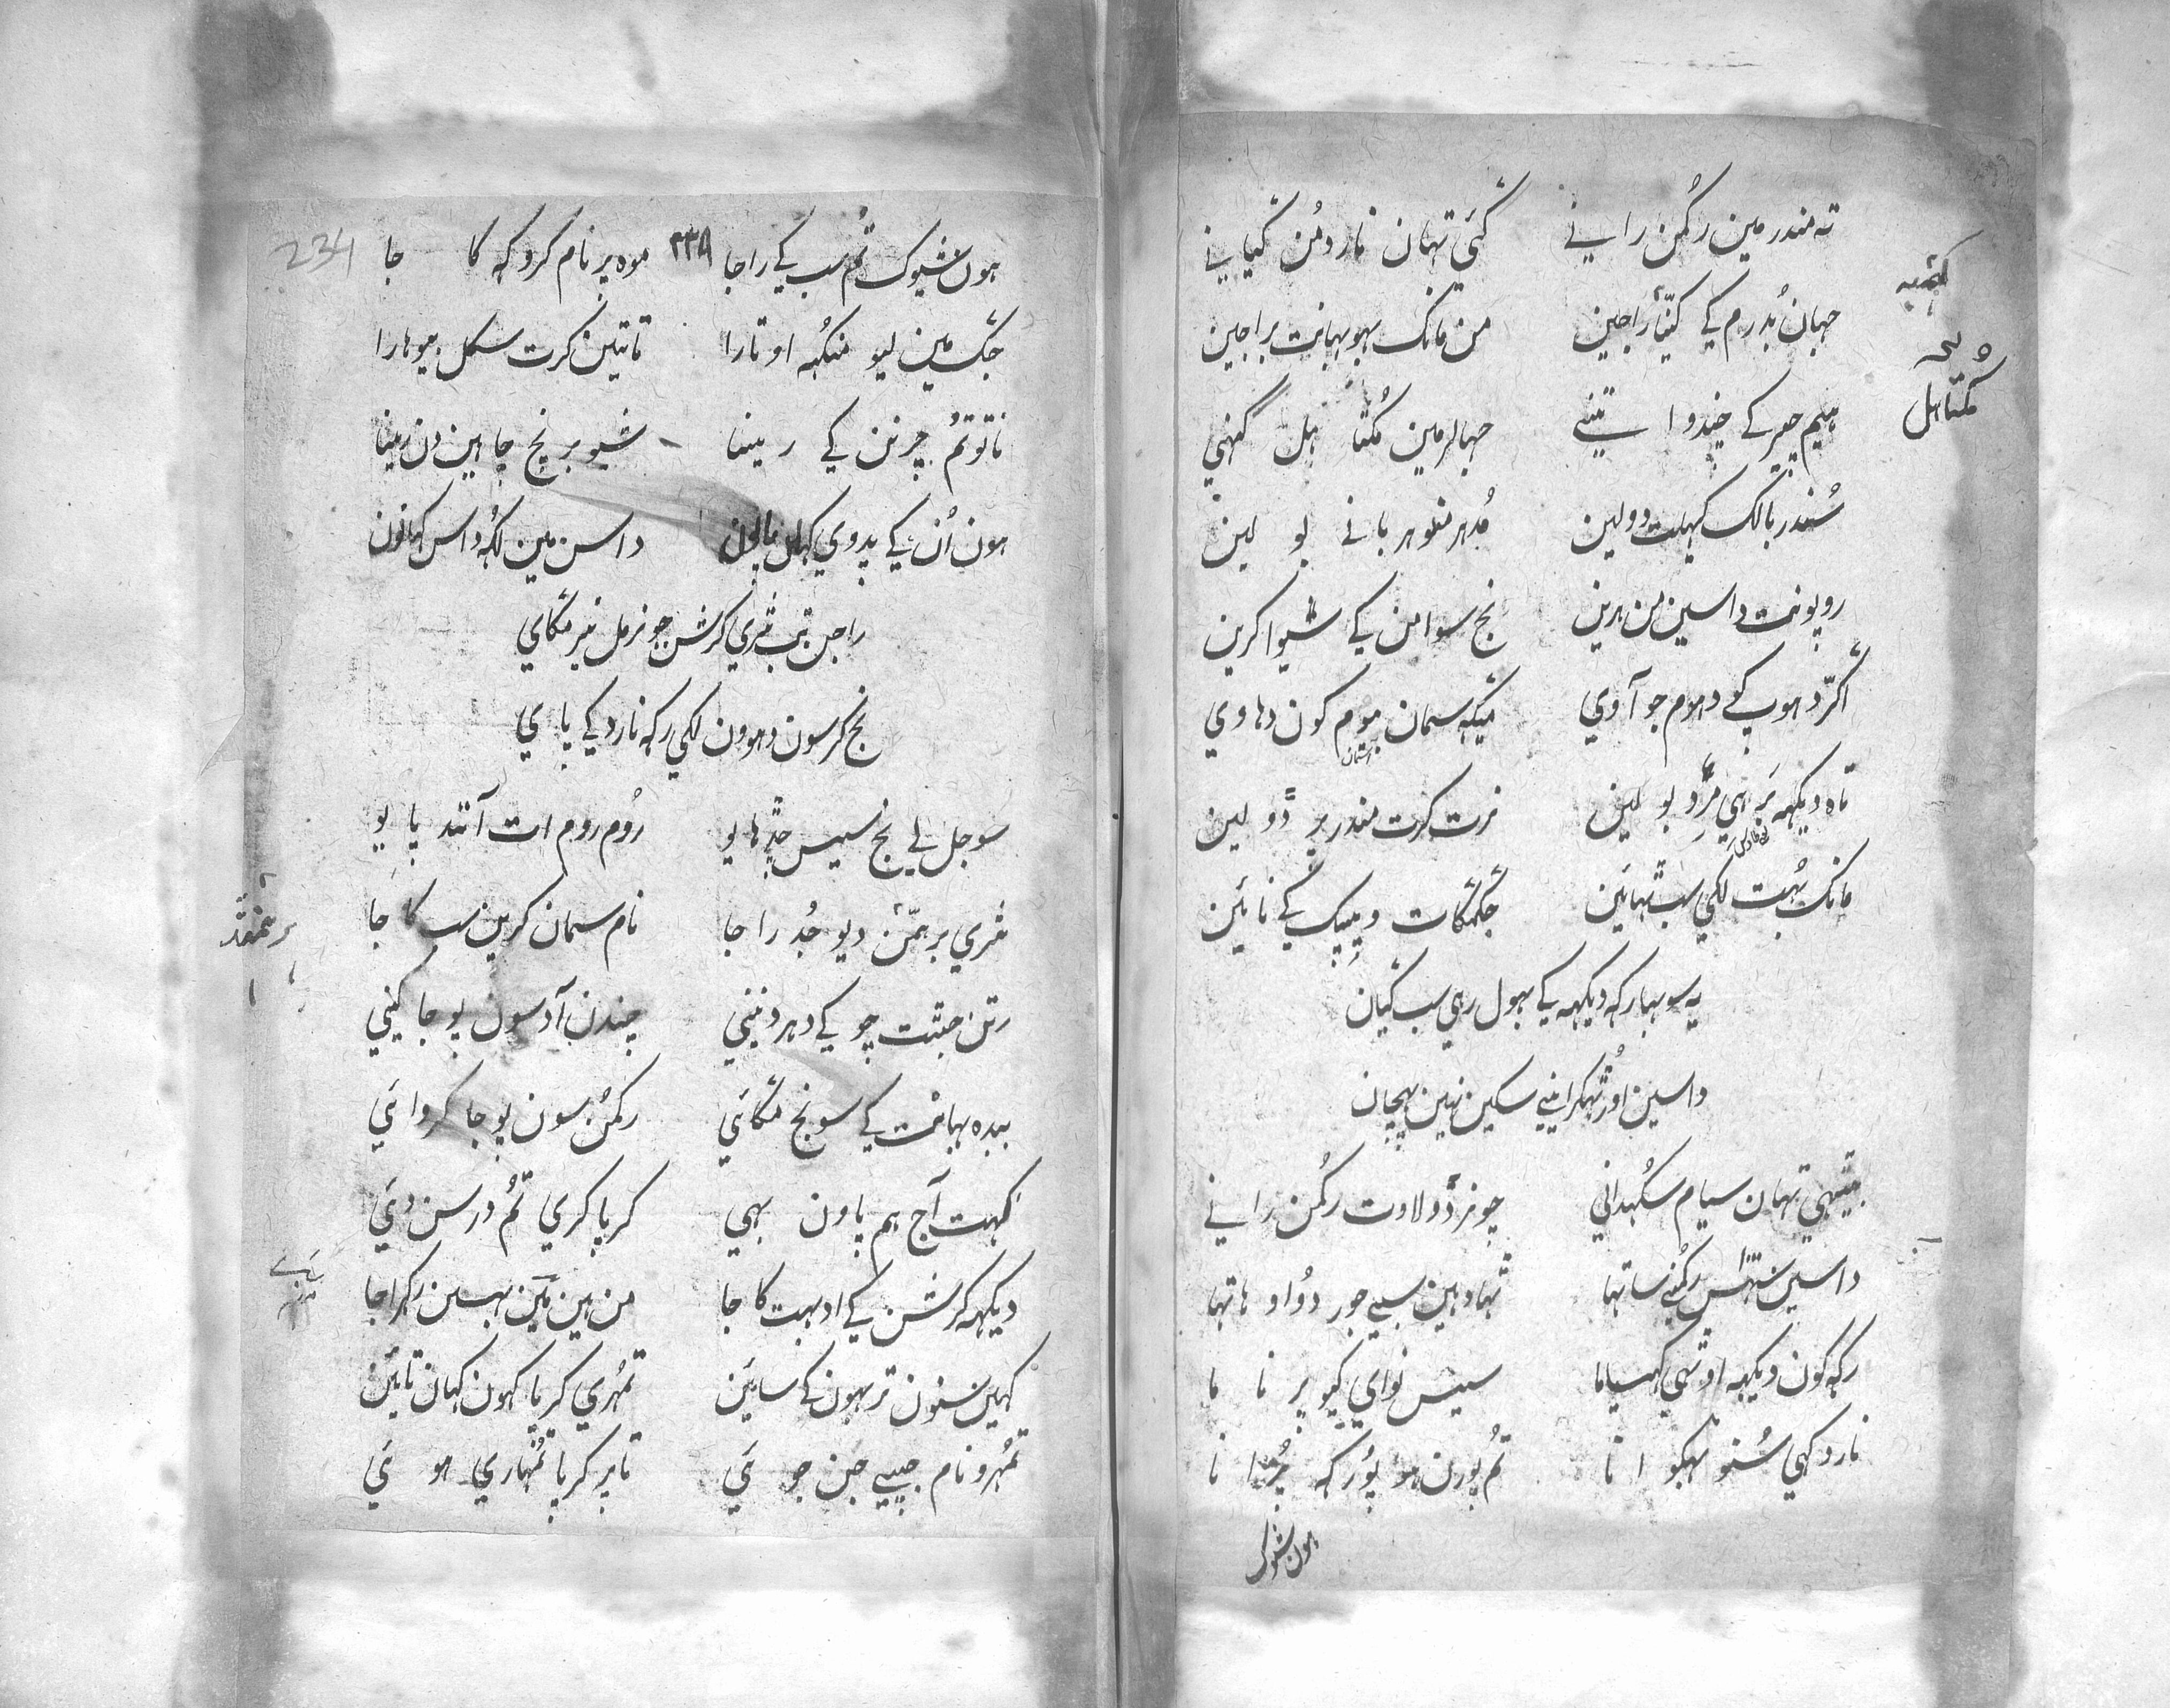 ته مندر مين رُكمن رانے گئي تهان نارد مُن گيانے
جهان بُدرم کے کنّيا راجين من مانک بهو بهانت براجين
هيم چير کے چندوا تنے جهالر مين مُکتا هل گهنے
سُندر بالک کهيلت دولين مُدهر منوهر بانے بولين
روپونت داسين من هرين نج سوامن کے شيوا کرين
اگر دهوپ کے دهوم جو آوي ميگه سمان بيوم کون دهاوي
تاه ديکهه پر هي مرّد بولين نرت کرت مندر پر ڈولين
مانک بُهت لگي سب ٹهائين جگمگات ديپک کے نائين
يه سوبها رکه ديکهه کے بهول رهي سب گيان
داسين اور ٹهکرانے سکين نهين پهچان
بيٹهي تهان سيام سکهدانے چونر ڈولاوت رکمن رانے
داسين رکمنے ساتها ٹهاڈهين سبے جور دوُاو هاتها
رکه کون ديکهه اوٹهي گهنسياما سيس نواي کيو پرناما
نارد کهي سُنو بهگوانا تُم پورن هو پُورکه پُرانا
هون شيوک
هون شيوک تُم سب کے راجا ٢٣٨ موه پرنام کرو که کاجا
234
جگ مين ليو منکهه اوتارا تاتين کرت سکل بيوهارا
ناتو تُم چرنن کے رينا شيو برنچ چاهين دن رينا
هون اُن کے پدوي کهان پاون داسن مين لگهه داس کهاون
راجن تب شري کرشن جو نرمل نير منگاي
نج کر سون دهوون لگي رکه نارد کے پاي
سو جل لے نج سيس چڑهايو روُم روم ات آنند پايو
شري برهمّن ديو جدُ راجا نام سمان کرين سب کاجا
رتن جٹت چوکے دهر دينے چندن آد سون پوجا کينے
بده بهانت کے سونج منگائي رکمُن سون پوجا کروائي
کهت آج هم پاون بهي کرپا کري تُم درسن دئي
ديکهه کرشن کے ادبهت کاجا من هين مين بهسين رکهراجا
کهين سنون ترهون کے سائين تمُهري کرپا کهون کهان تائين
تمُهرو نام جپے جن جوئي تاپر کرپا تمُهاري هوئي